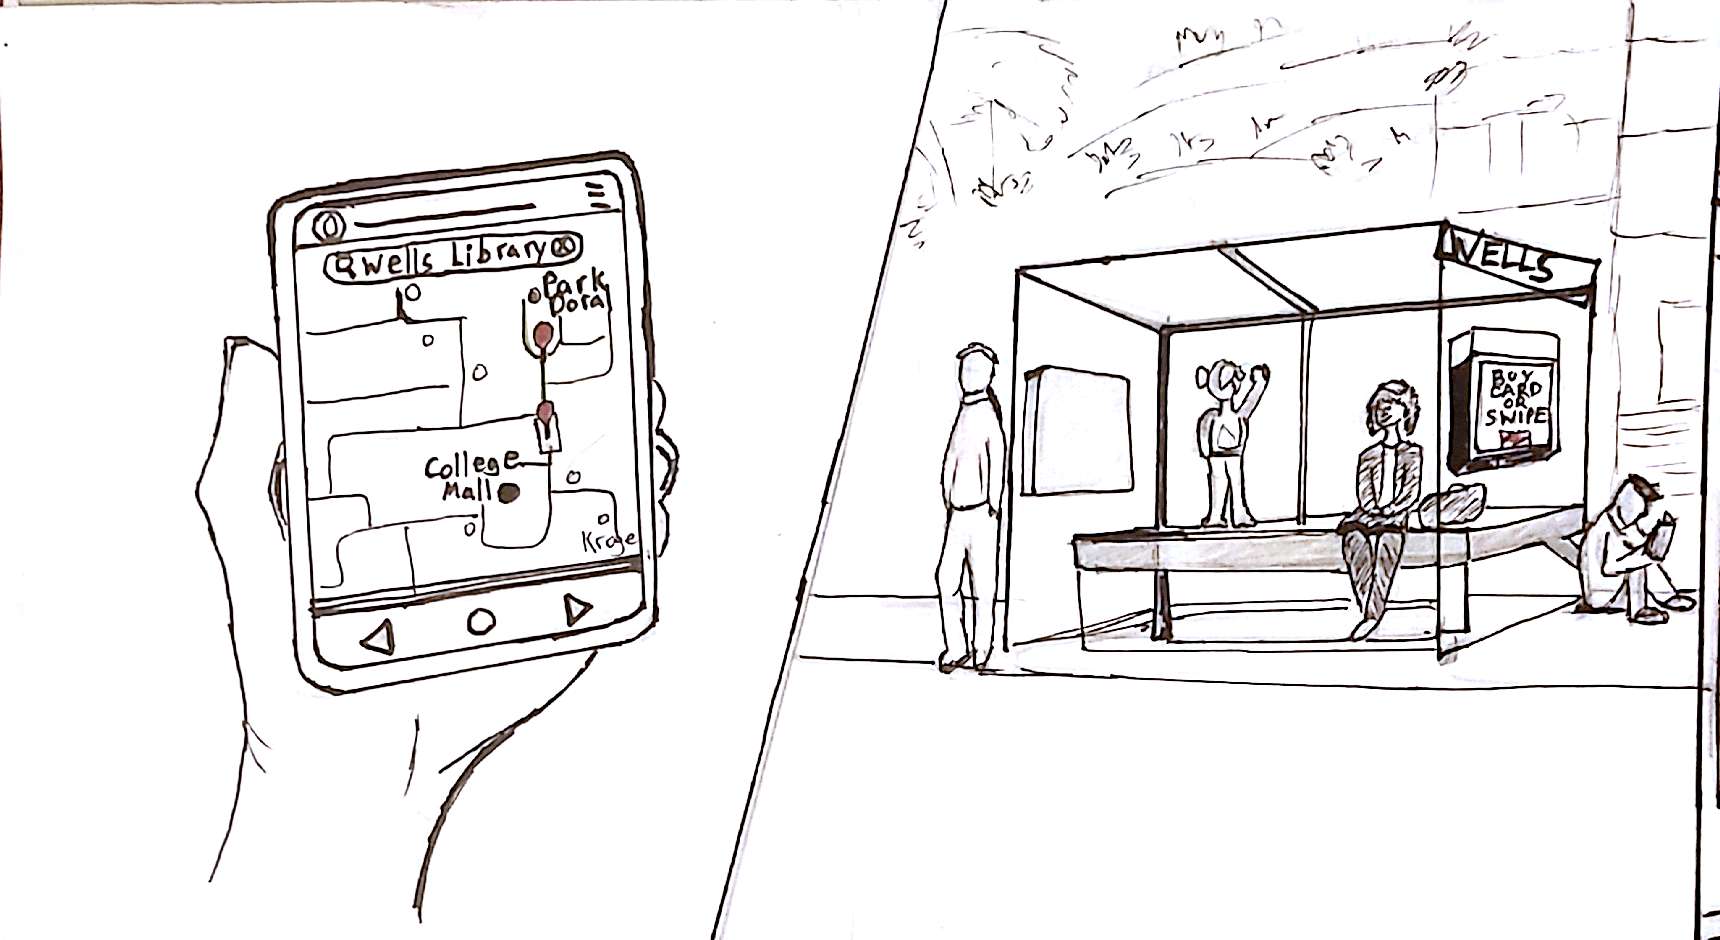 Wells Library
Park
Dora
College
Mall
Kroge
WELLS
BUY
CARD
OR
SWIPE